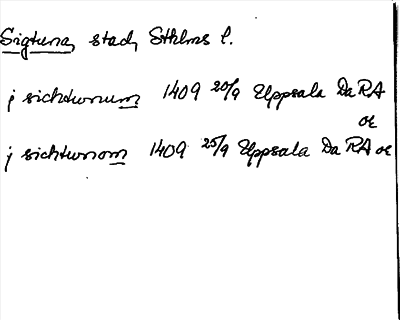 Sigtuna, stad, Sthlms l.
j sichtwnum 1409 20/9 Uppsala Da RA
or
j sichtwnom 1409 25/9 Uppsala Da RA or